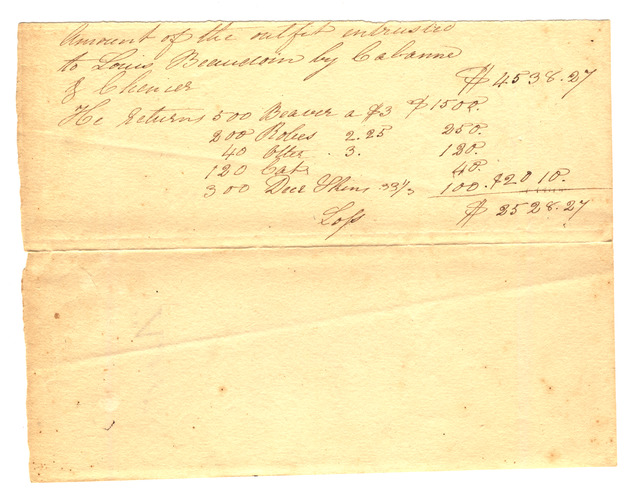 Amount of the outfit intrusted
to Louis Beaudoin by Cabanne
& Chenier $ 4538.27
He Returns 500 Beaver a $3 $1500.
200 Robes 2.25 250.
40 Otter . 3. 120.
120 Cat 40.
300 Deer Skins .33⅓ 100. $2010.
Loss $ 2528.27